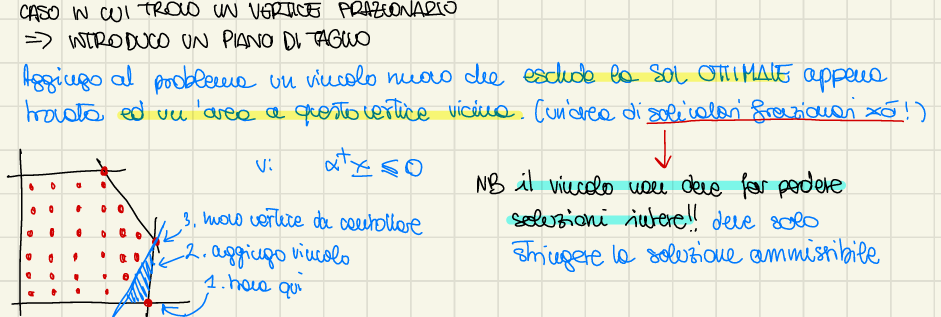 CASO IN CUI TROVO UN VERTICE FRAZIONARIO
=> INTRODUCO UN PIANO DI TAGLIO
Aggiungo al problema un vincolo nuovo che esclude la SOL OTTIMALE appena
trovata ed un'area a questo vertice vicina. (un'area di soli valori frazionari però!)
Vi: α^T x ≤ 0
NB il vincolo non deve far perdere
soluzioni intere!! deve solo
stringere la soluzione ammissibile
3. nuovo vertice da controllare
2. aggiungo vincolo
1. trova qui